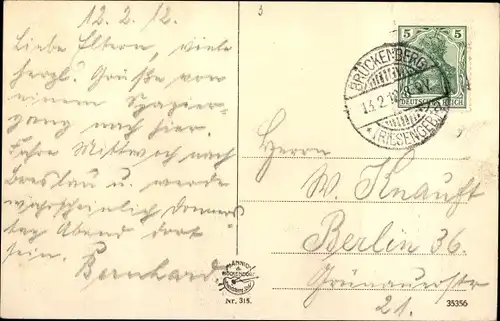 12.2.12.
3
Liebe Eltern, viele
herzl. Grüße von
einem Spazier-
gang nach hier.
Fahre Mittwoch nach
Breslau u. werde
wahrscheinlich Donners-
tag Abend dort
sein. Bernhard
5 5
DEUTSCHES REICH
BRÜCKENBERG
13.2.
(RIESENGEB.)
Herrn
W. Knauft
Berlin 36.
Grünauerstr
21.
Nr. 315.
35356